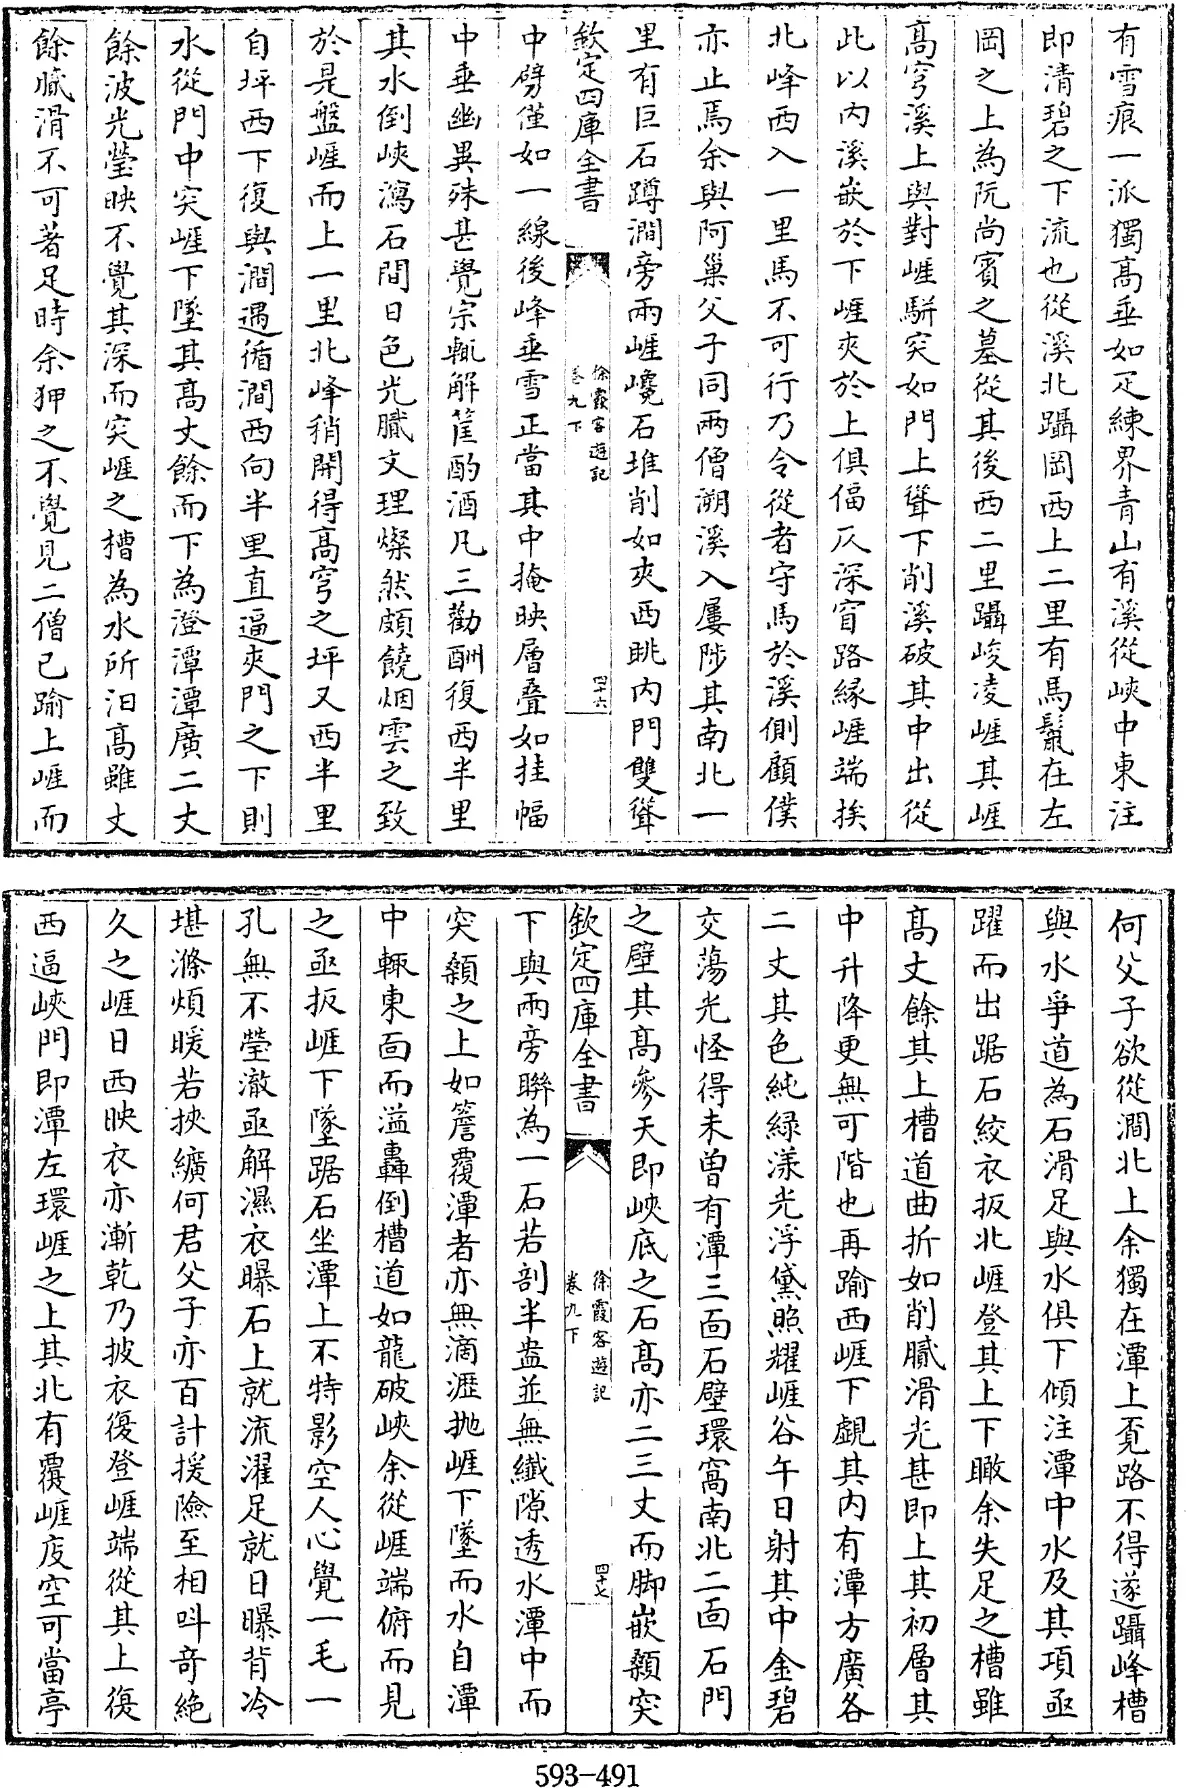 有雪痕一派獨髙垂如疋練界青山有溪從峽中東注
即清碧之下流也從溪北躡岡西上二里有馬鬛在左
岡之上為阮尚賓之墓從其後西二里躡峻凌崕其崕
髙穹溪上與對崕駢突如門上聳下削溪破其中出從
此以内溪嵌於下崕夾於上俱偪仄深窅路縁崕端挨
北峰西入一里馬不可行乃令從者守馬於溪側顧僕
亦止焉余與阿巢父子同兩僧溯溪入屢陟其南北一
里有巨石蹲澗旁兩崕巉石堆削如夾西眺内門雙聳
欽定四庫全書
徐霞客遊記
卷九下
四十六
中劈僅如一線後峰垂雪正當其中掩映層疊如挂幅
中垂幽異殊甚覺宗輒解筐酌酒凡三勸酬復西半里
其水倒峽瀉石間日色光膩文理燦然頗饒烟雲之致
於是盤崕而上一里北峰稍開得髙穹之坪又西半里
自坪西下復與澗遇循澗西向半里直逼夾門之下則
水從門中突崕下墜其髙丈餘而下為澄潭潭廣二丈
餘波光瑩映不覺其深而突崕之槽為水所汩髙雖丈
餘膩滑不可著足時余狎之不覺見二僧已踰上崕而
何父子欲從澗北上余獨在潭上覓路不得遂躡峰槽
與水爭道為石滑足與水俱下傾注潭中水及其項亟
躍而出踞石絞衣扳北崕登其上下瞰余失足之槽雖
髙丈餘其上槽道曲折如削膩滑尤甚即上其初層其
中升降更無可階也再踰西崕下覷其内有潭方廣各
二丈其色純緑漾光浮黛照耀崕谷午日射其中金碧
交蕩光怪得未曽有潭三面石壁環窩南北二面石門
之壁其髙參天即峽底之石髙亦二三丈而脚嵌顙突
欽定四庫全書
徐霞客遊記
卷九下
四十七
下與兩旁聨為一石若剖半盎並無纎隙透水潭中而
突顙之上如簷覆潭者亦無滴瀝抛崕下墜而水自潭
中輒東面而溢轟倒槽道如龍破峽余從崕端俯而見
之亟扳崕下墜踞石坐潭上不特影空人心覺一毛一
孔無不瑩澈亟解濕衣曝石上就流濯足就日曝背冷
堪滌煩暖若挾纊何君父子亦百計援險至相呌奇絶
久之崕日西映衣亦漸乾乃披衣復登崕端從其上復
西逼峽門即潭左環崕之上其北有覆崕庋空可當亭
593-491